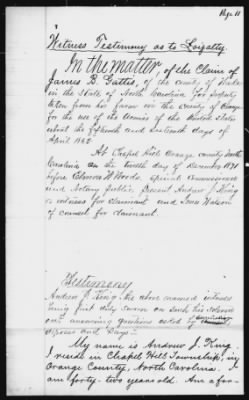 Page 11
Witness Testimony as to Loyalty.
In the matter, of the Claim of
James B. Gattis, of the County of
in the State of North Carolina for property
taken from his farm in the County of Orange
for the use of the Armies of the United States
about the fifteenth and sixteenth days of
April 1865
At Chapel Hill Orange county North
Carolina on the twelfth day of December 1871
before W Woods special Commissioner
and Notary Public. Present Andrew J. King
a witness for claimant and Jones Watson
of counsel for claimant.
Testimony
Andrew J. King the above named witness
being first duly sworn on such his
answering questions asked of
deposes and says:-
My name is Andrew J. King
I reside in Chapel Hill Township, in
Orange County, North Carolina. I
am forty-two years old. Am a far-